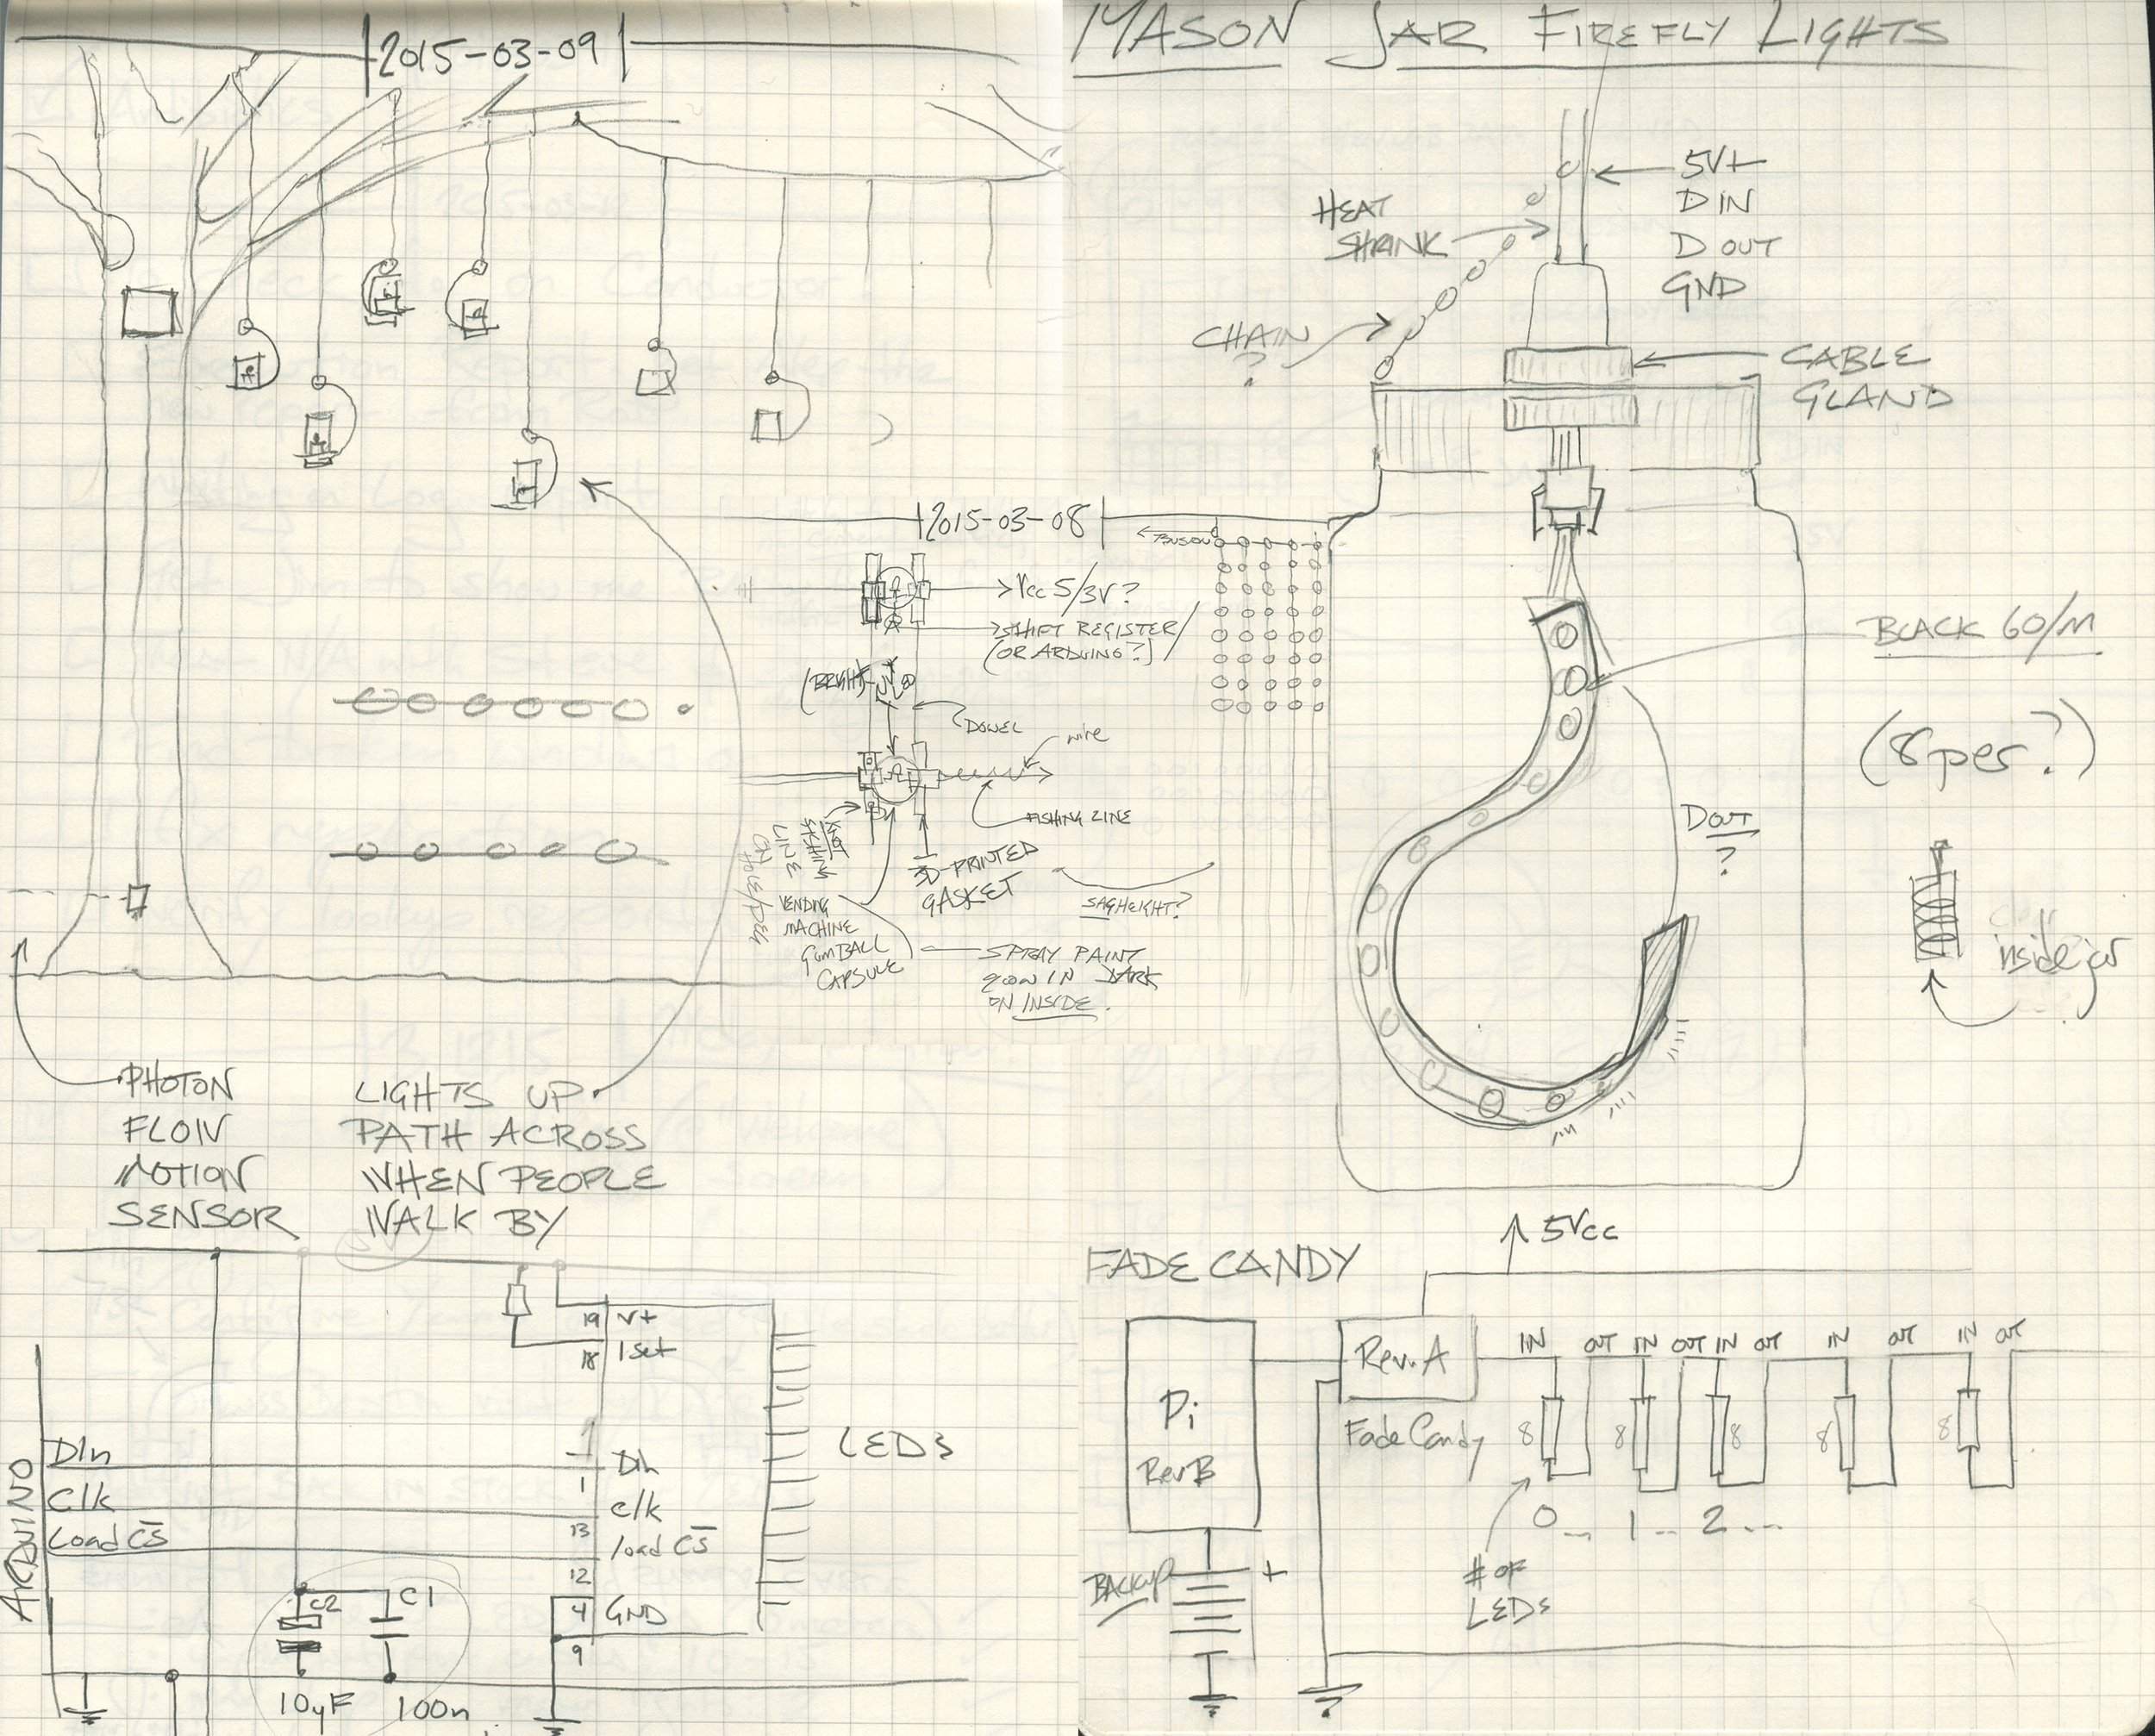 2015-03-09
PHOTON
FLOW
MOTION
SENSOR
LIGHTS UP
PATH ACROSS
WHEN PEOPLE
WALK BY
2015-03-08
Vcc 5/3V?
SHIFT REGISTER/
(OR ARDUINO?)
DOWEL
wire
FISHING LINE
KNOT
FISHING
LINE
ON
3D-PRINTED
GASKET
SAG HEIGHT?
VENDING
MACHINE
GUMBALL
CAPSULE
SPRAY PAINT
GLOW IN DARK
ON INSIDE.
MASON JAR FIREFLY LIGHTS
HEAT
SHRINK
5V+
D IN
D OUT
GND
CHAIN
?
CABLE
GLAND
BLACK 60/M
(8 per?)
DOUT
?
inside jar
ARDUINO
DIn
Clk
Load CS
19 V+
18 Iset
1 DIn
13 clk
12 load CS
4 GND
9
LEDs
C2 C1
10µF 100n
FADE CANDY
5Vcc
Pi
Rev B
Rev. A
Fade Candy
IN OUT IN OUT IN OUT IN OUT IN OUT
8 8 8 8 8
0... 1... 2...
BACKUP
+
# OF
LEDs